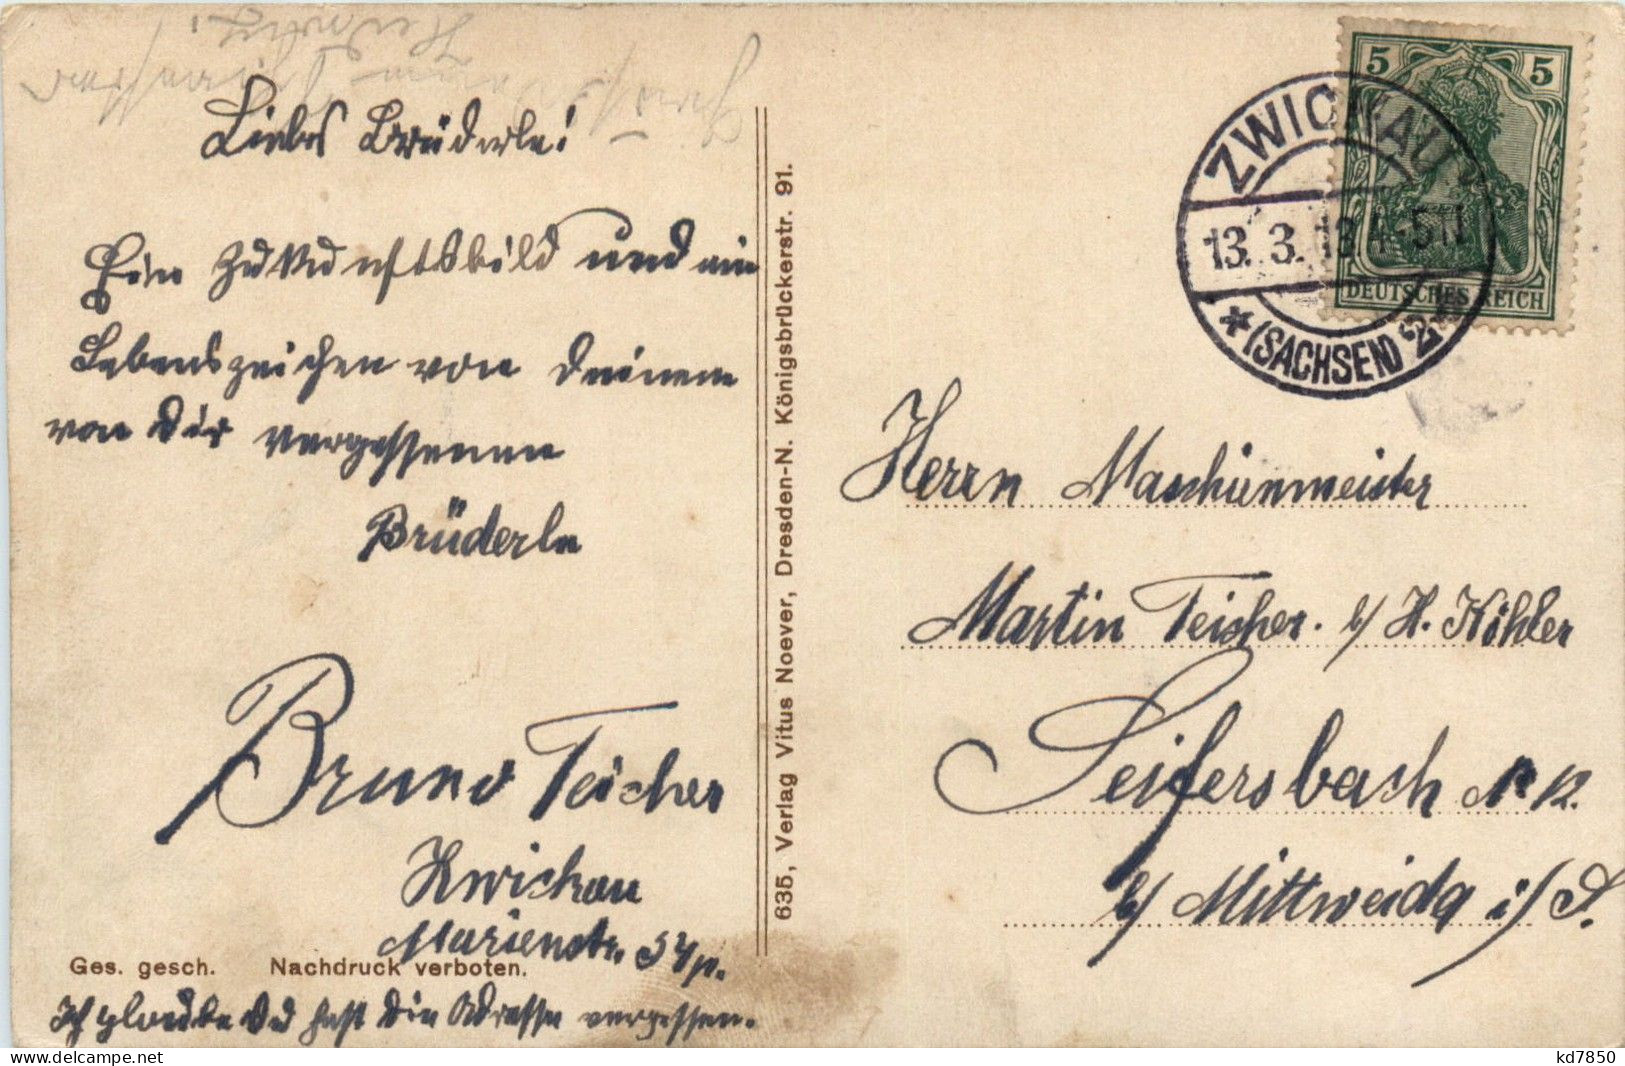 Liebes Brüderle!
Ein Zukunftsbild und ein
Lebenszeichen von Deinem
von Dir vergessenen
Brüderle
Bruno Teicher
Zwickau
Marienstr. 54p.
Ges. gesch. Nachdruck verboten.
Ich glaube Du hast die Adresse vergessen.
635, Verlag Vitus Noever, Dresden-N. Königsbrückerstr. 91.
5 5
DEUTSCHES REICH
ZWICKAU
13. 3. 13 4-5N
* (SACHSEN) 2*
Herrn Maschienmeister
Martin Teicher. b/ H. Köhler
Seifersbach
b/ Mittweida i/S.
kd7850